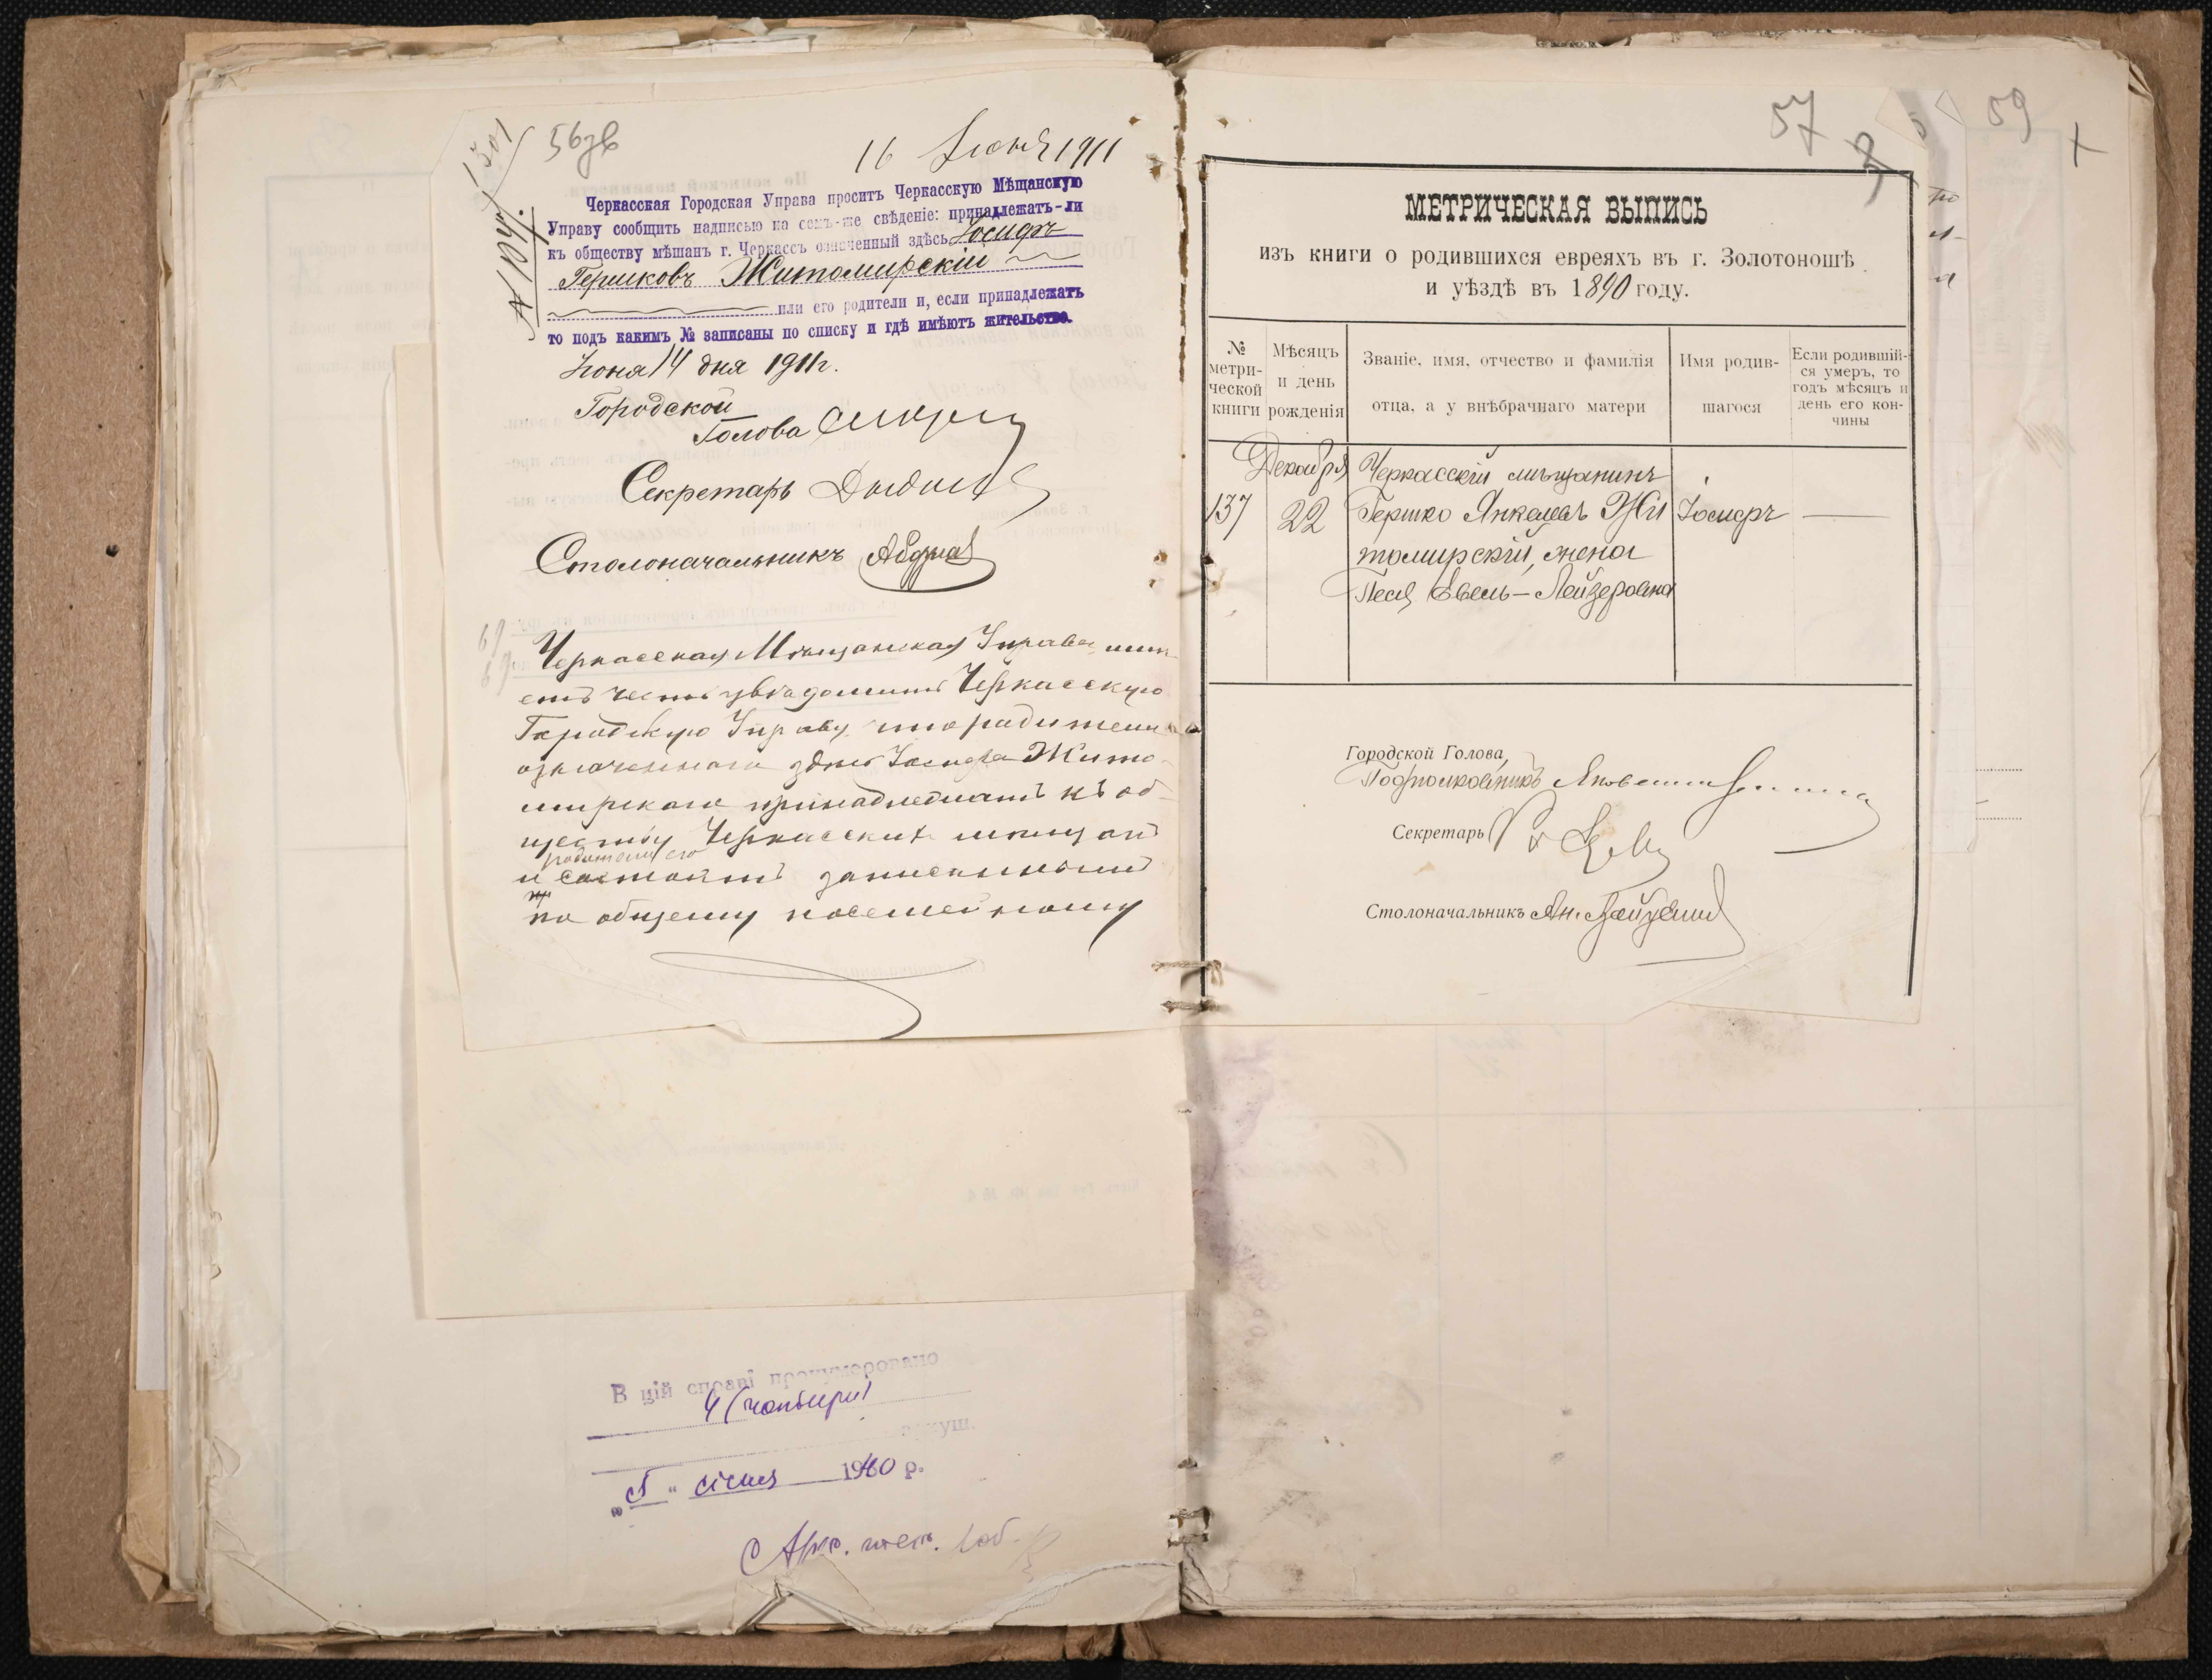 56зв
16 Iюня 1911
Черкасская Городская Управа проситъ Черкасскую Мѣщанскую
Управу сообщить надписью на семъ-же свѣденіе: принадлежатъ-ли
къ обществу мѣщанъ г. Черкассъ означенный здѣсь Iосифъ
Гершковъ Житомирскій
или его родители и, если принадлежатъ
то подъ какимъ № записаны по списку и гдѣ имѣютъ жительство.
Iюня 14 дня 1911 г.
Городской
Голова
Секретарь
Столоначальникъ
Черкасская Мѣщанская Управа имѣ-
етъ честь увѣдомить Черкасскую
Городскую Управу, что родители
означеннаго здѣсь Iосифа Жито-
мирскаго принадлежатъ къ об-
ществу Черкасскихъ мѣщанъ
родители его
и состоятъ записанными
по общему посемейному
В цій справі пронумеровано
4 (чотири)
аркуш.
"5" січня 1940 р.
57
59
МЕТРИЧЕСКАЯ ВЫПИСЬ
изъ книги о родившихся евреяхъ въ г. Золотоношѣ
и уѣздѣ въ 1890 году.
№ метри-ческой книги
Мѣсяцъ и день рожденія
Званіе, имя, отчество и фамилія отца, а у внѣбрачнаго матери
Имя родив-шагося
Если родившій-ся умеръ, то годъ мѣсяцъ и день его кон-чины
Декабря Черкасскій мѣщанинъ
137 22 Гершко Янкелевъ Жи Iосифъ —
томирскій, жена
Песя Евель-Лейзеровна
Городской Голова,
Подполковникъ
Секретарь
Столоначальникъ